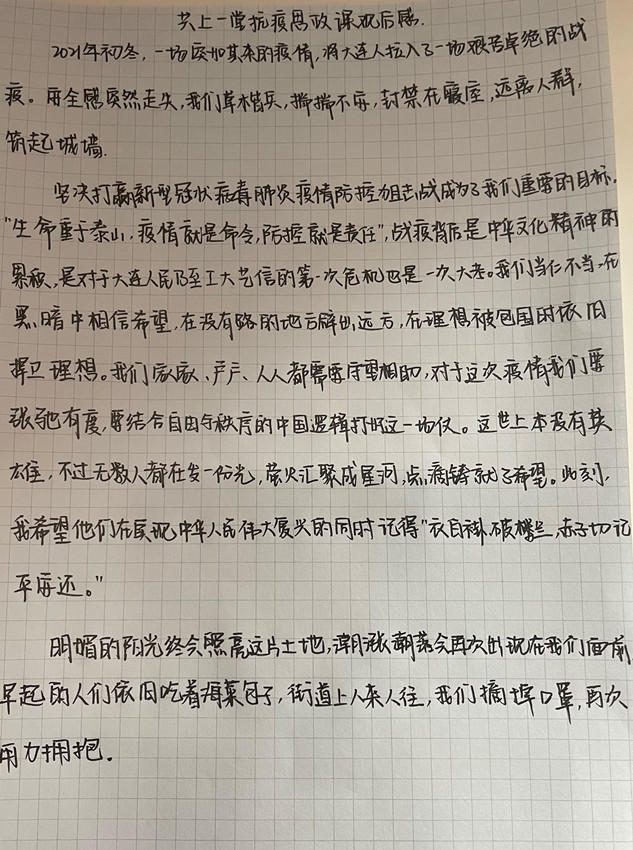 共上一堂抗疫思政课观后感.
2021年初冬,一场突如其来的疫情,将大连人拉入了一场艰苦卓绝的战
疫。安全感突然走失,我们草木皆兵,惴惴不安,封禁在寝室,远离人群,
筑起城墙.
坚决打赢新型冠状病毒肺炎疫情防控阻击战成为了我们重要的目标.
"生命重于泰山.疫情就是命令,防控就是责任",战疫背后是中华文化精神的
累积,是对于大连人民乃至工大艺信的第一次危机也是一次大考。我们当仁不当,在
黑暗中相信希望,在没有路的地方辟出远方,在理想被包围时依旧
捍卫理想。我们家家、户户、人人都需要守望相助,对于这次疫情我们要
张弛有度,要结合自由与秩序的中国逻辑打好这一场仗。这世上本没有英
雄,不过无数人都在发一份光,萤火汇聚成星河,点滴铸就了希望。此刻,
我希望他们在实现中华人民伟大复兴的同时记得"衣白褂.破楼兰,赤子切记
平安还。"
明媚的阳光终会照亮这片土地,潮涨潮落会再次出现在我们面前
早起的人们依旧吃着海菜包子,街道上人来人往,我们摘掉口罩,再次
用力拥抱.